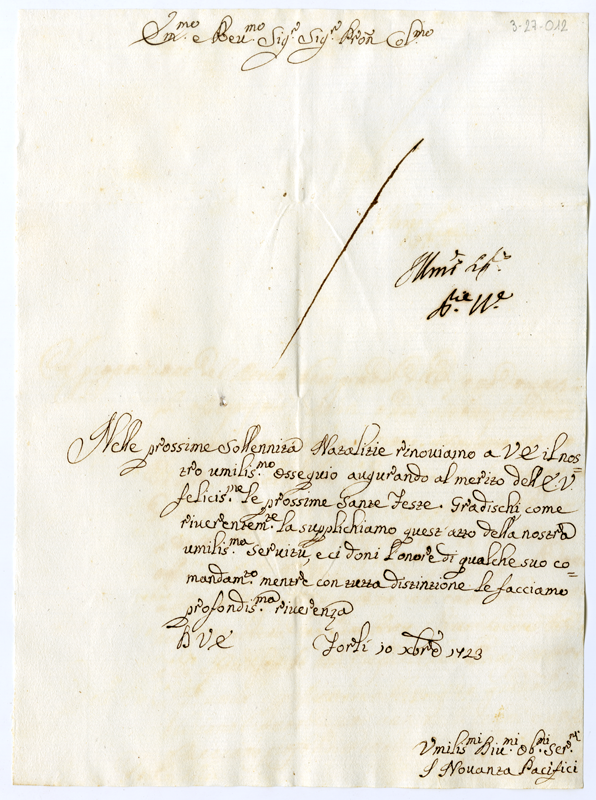 3-27-012
Em.mo e Reu.mo Sig.r Sig.r Pron Col.mo
Nelle prossime Sollennità Natalitie rinoviamo a VE il nos=
tro umilis.mo ossequio augurando al merito dell'E.V.
felicis.me le prossime Sante Feste. Gradischi come
riverentem.te la supplichiamo quest'atto della nostra
umilis.ma Servitù, e ci doni l'onore di qualche suo co=
mandam.to mentre con tutta distintione le facciamo
profondis.ma riverenza
D VE Forlì 10 xbre 1723
Vmilis.mi Diu.mi Ob.mi Ser.ri
I Novanta Pacifici